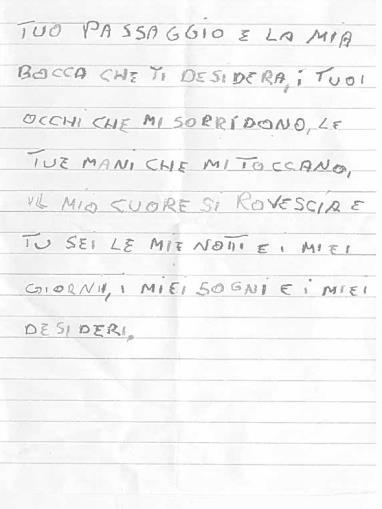 TUO PASSAGGIO E LA MIA
BOCCA CHE TI DESIDERA, I TUOI
OCCHI CHE MI SORRIDONO, LE
TUE MANI CHE MI TOCCANO,
IL MIO CUORE SI ROVESCIA E
TU SEI LE MIE NOTTI E I MIEI
GIORNI, I MIEI SOGNI E I MIEI
DESIDERI.